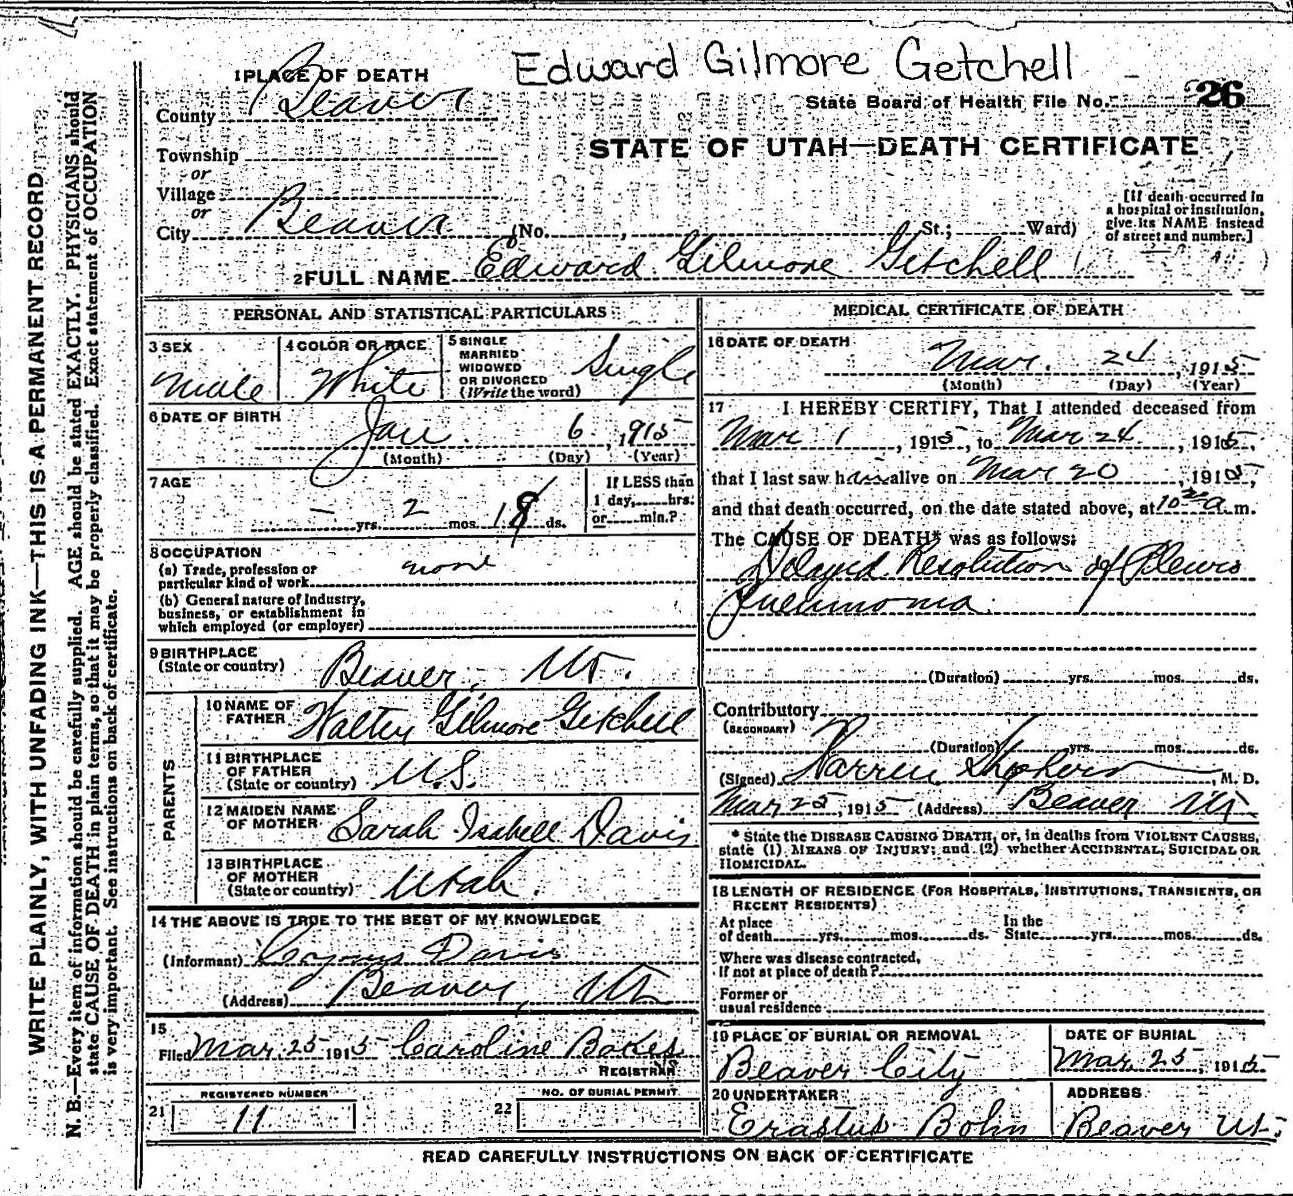 Edward Gilmore Getchell
1 PLACE OF DEATH
County Beaver
State Board of Health File No. 26
STATE OF UTAH—DEATH CERTIFICATE
Township
or
Village
or
City Beaver (No. , St.; Ward)
[If death occurred in a hospital or institution, give its NAME instead of street and number.]
2 FULL NAME Edward Gilmore Getchell
PERSONAL AND STATISTICAL PARTICULARS
3 SEX
Male
4 COLOR OR RACE
White
5 SINGLE
MARRIED
WIDOWED
OR DIVORCED
(Write the word)
Single
6 DATE OF BIRTH
Jan. 6, 1915
(Month) (Day) (Year)
7 AGE
— yrs. 2 mos. 18 ds.
If LESS than
1 day, hrs.
or min.?
8 OCCUPATION
(a) Trade, profession or
particular kind of work none
(b) General nature of Industry,
business, or establishment in
which employed (or employer)
9 BIRTHPLACE
(State or country) Beaver, Ut.
PARENTS
10 NAME OF
FATHER Walter Gilmore Getchell
11 BIRTHPLACE
OF FATHER
(State or country) U.S.
12 MAIDEN NAME
OF MOTHER Sarah Isabell Davis
13 BIRTHPLACE
OF MOTHER
(State or country) Utah.
14 THE ABOVE IS TRUE TO THE BEST OF MY KNOWLEDGE
(Informant) Davis
(Address) Beaver, Ut
15
Filed Mar. 25 1915 Caroline
REGISTRAR
REGISTERED NUMBER
21 11
NO. OF BURIAL PERMIT
22
MEDICAL CERTIFICATE OF DEATH
16 DATE OF DEATH
Mar. 24, 1915
(Month) (Day) (Year)
17 I HEREBY CERTIFY, That I attended deceased from
Mar 1, 1915, to Mar 24, 1915,
that I last saw him alive on Mar 20, 1915,
and that death occurred, on the date stated above, at 10 30 a m.
The CAUSE OF DEATH* was as follows:
Delayed Resolution of Pleuro
Pneumonia
(Duration) yrs. mos. ds.
Contributory
(SECONDARY)
(Duration) yrs. mos. ds.
(Signed) Warren Shepherd, M. D.
Mar 25, 1915 (Address) Beaver Ut
* State the DISEASE CAUSING DEATH, or, in deaths from VIOLENT CAUSES,
state (1) MEANS OF INJURY; and (2) whether ACCIDENTAL, SUICIDAL OR
HOMICIDAL.
18 LENGTH OF RESIDENCE (FOR HOSPITALS, INSTITUTIONS, TRANSIENTS, OR
RECENT RESIDENTS)
At place
of death yrs. mos. ds.
In the
State yrs. mos. ds.
Where was disease contracted,
if not at place of death?
Former or
usual residence
19 PLACE OF BURIAL OR REMOVAL
Beaver City
DATE OF BURIAL
Mar. 25, 1915.
20 UNDERTAKER
Erastus Bohn
ADDRESS
Beaver Ut.
READ CAREFULLY INSTRUCTIONS ON BACK OF CERTIFICATE
WRITE PLAINLY, WITH UNFADING INK—THIS IS A PERMANENT RECORD
N. B.—Every item of information should be carefully supplied. AGE should be stated EXACTLY. PHYSICIANS should
state CAUSE OF DEATH in plain terms, so that it may be properly classified. Exact statement of OCCUPATION
is very important. See instructions on back of certificate.